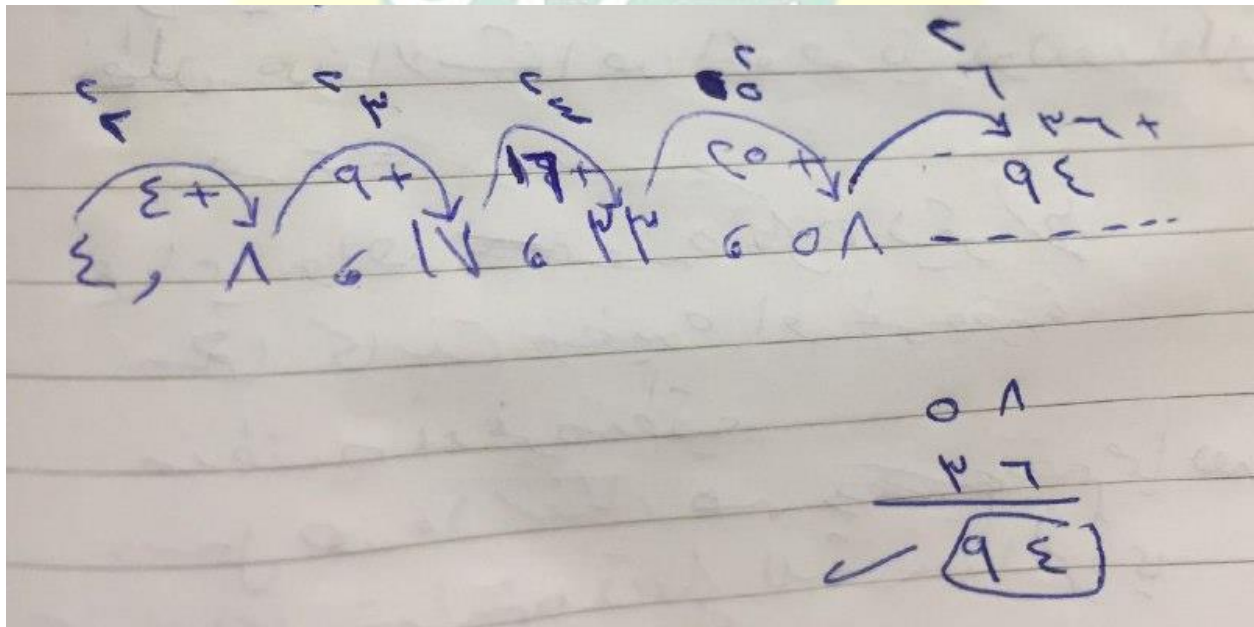 ٢٢ ٢٣ ٢٤ ٢٥ ٢٦
٤+ ٩+ ١٦+ ٢٥+ ٣٦+
٩٤
٤ , ٨ ، ١٧ ، ٣٣ ، ٥٨ - - - - -
٥٨
٣٦
٩٤ ✓